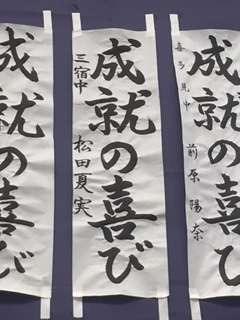 成就の喜び
喜多見中 前原陽奈
成就の喜び
三宿中 松田夏実
成就の喜び